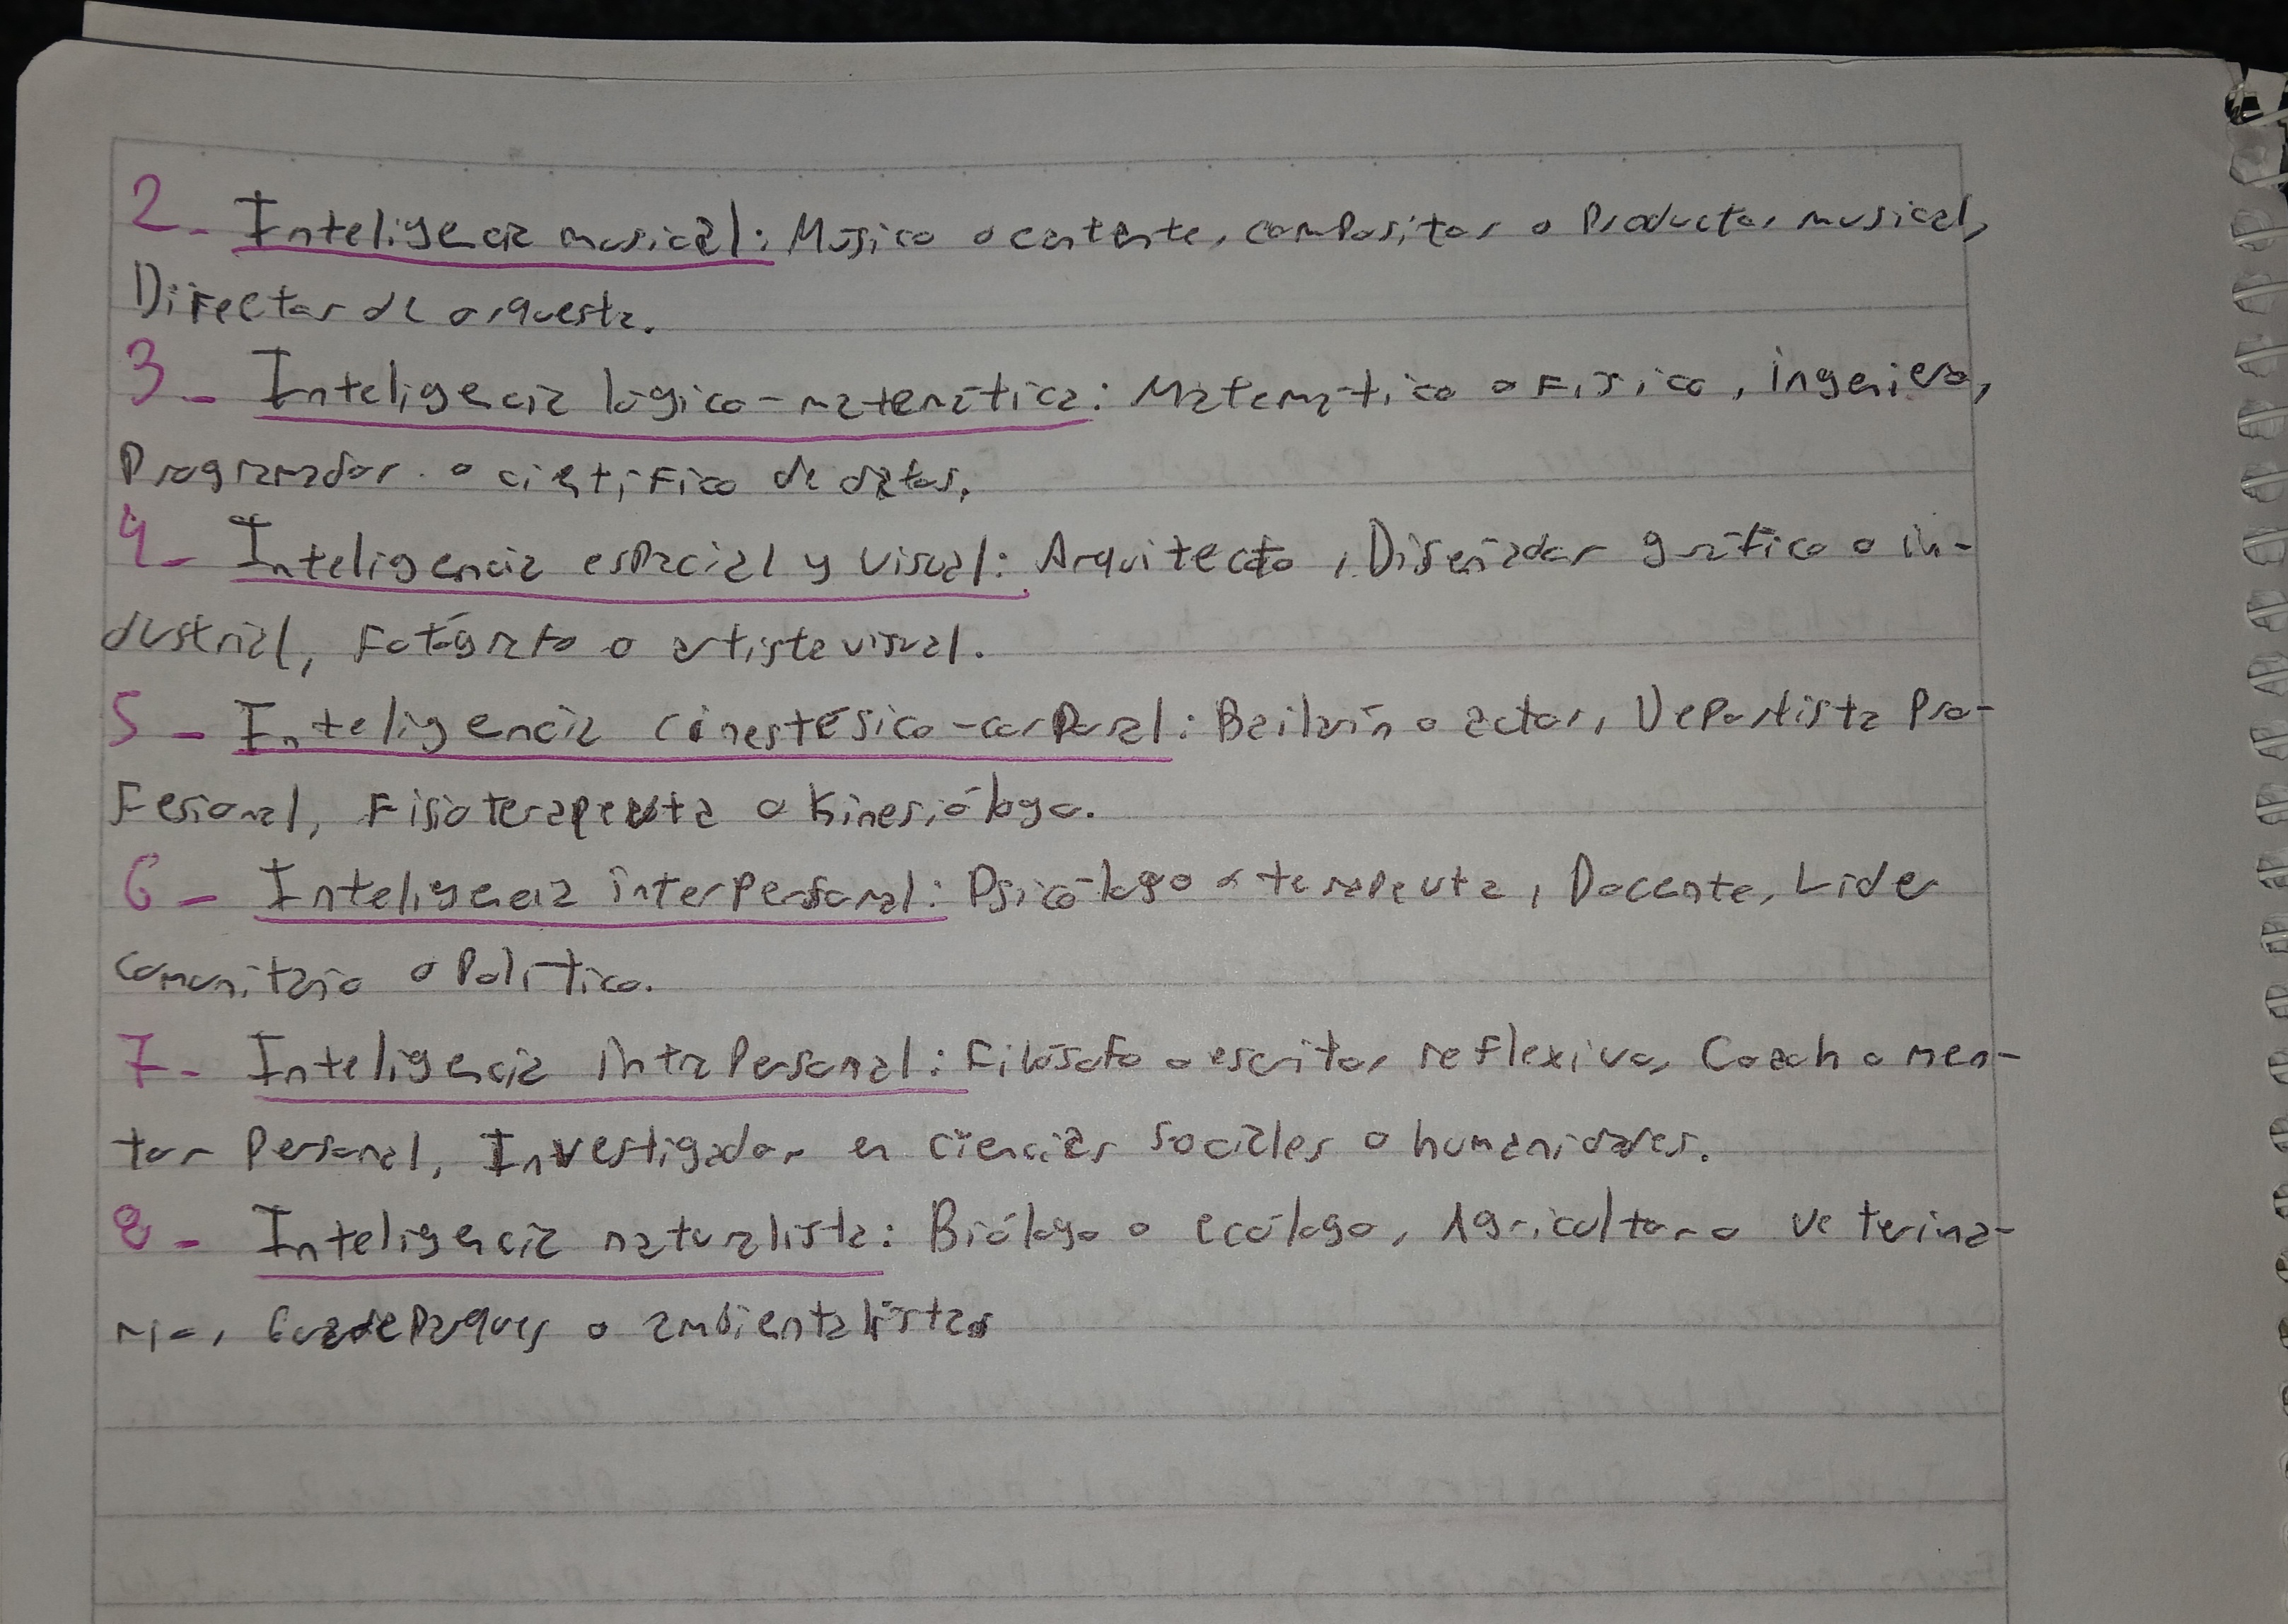 2- Inteligencia musical: Músico o cantante, compositor o Productor musical,
Director de orquesta.
3- Inteligencia lógico-matemática: Matemático o Físico, ingeniero,
Programador o científico de datos.
4- Inteligencia espacial y visual: Arquitecto, Diseñador gráfico o in-
dustrial, Fotógrafo o artista visual.
5- Inteligencia cinestésico-corporal: Bailarín o actor, Deportista pro-
Fesional, Fisioterapeuta o Kinesiólogo.
6- Inteligencia interpersonal: Psicólogo o terapeuta, Docente, Lider
comunitario o Político.
7- Inteligencia intrapersonal: Filósofo o escritor reflexivo, Coach o men-
tor Personal, Investigador en ciencias sociales o humanidades.
8- Inteligencia naturalista: Biólogo o ecólogo, Agricultor o veterina-
rio, Guardaparques o ambientalistas